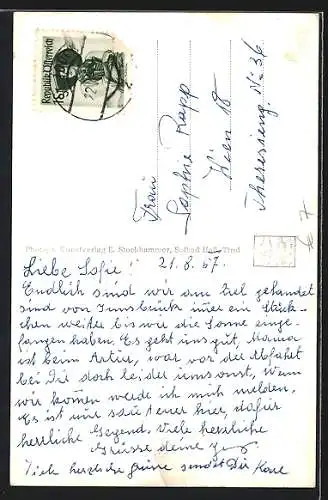 Republik Österreich
Frau
Sophie Rapp
Wien 18
Theresieng. No 36
Photo- u. Kunstverlag E. Stockhammer, Solbad Hall, Tirol
Liebe Sofie! 21.8.57.
Endlich sind wir am Ziel gelandet
sind von Innsbruck immer ein Stück-
chen weiter bis wir die Sonne einge-
fangen haben. Es geht uns gut, Mama
ist beim, war vor der Abfahrt
bei Dir doch leider umsonst, wenn
wir kommen werde ich mich melden.
Es ist nur teuer hier, dafür
herrliche Gegend. Viele herzliche
Grüsse deine
Viele herzliche Grüsse sendet Dir Karl